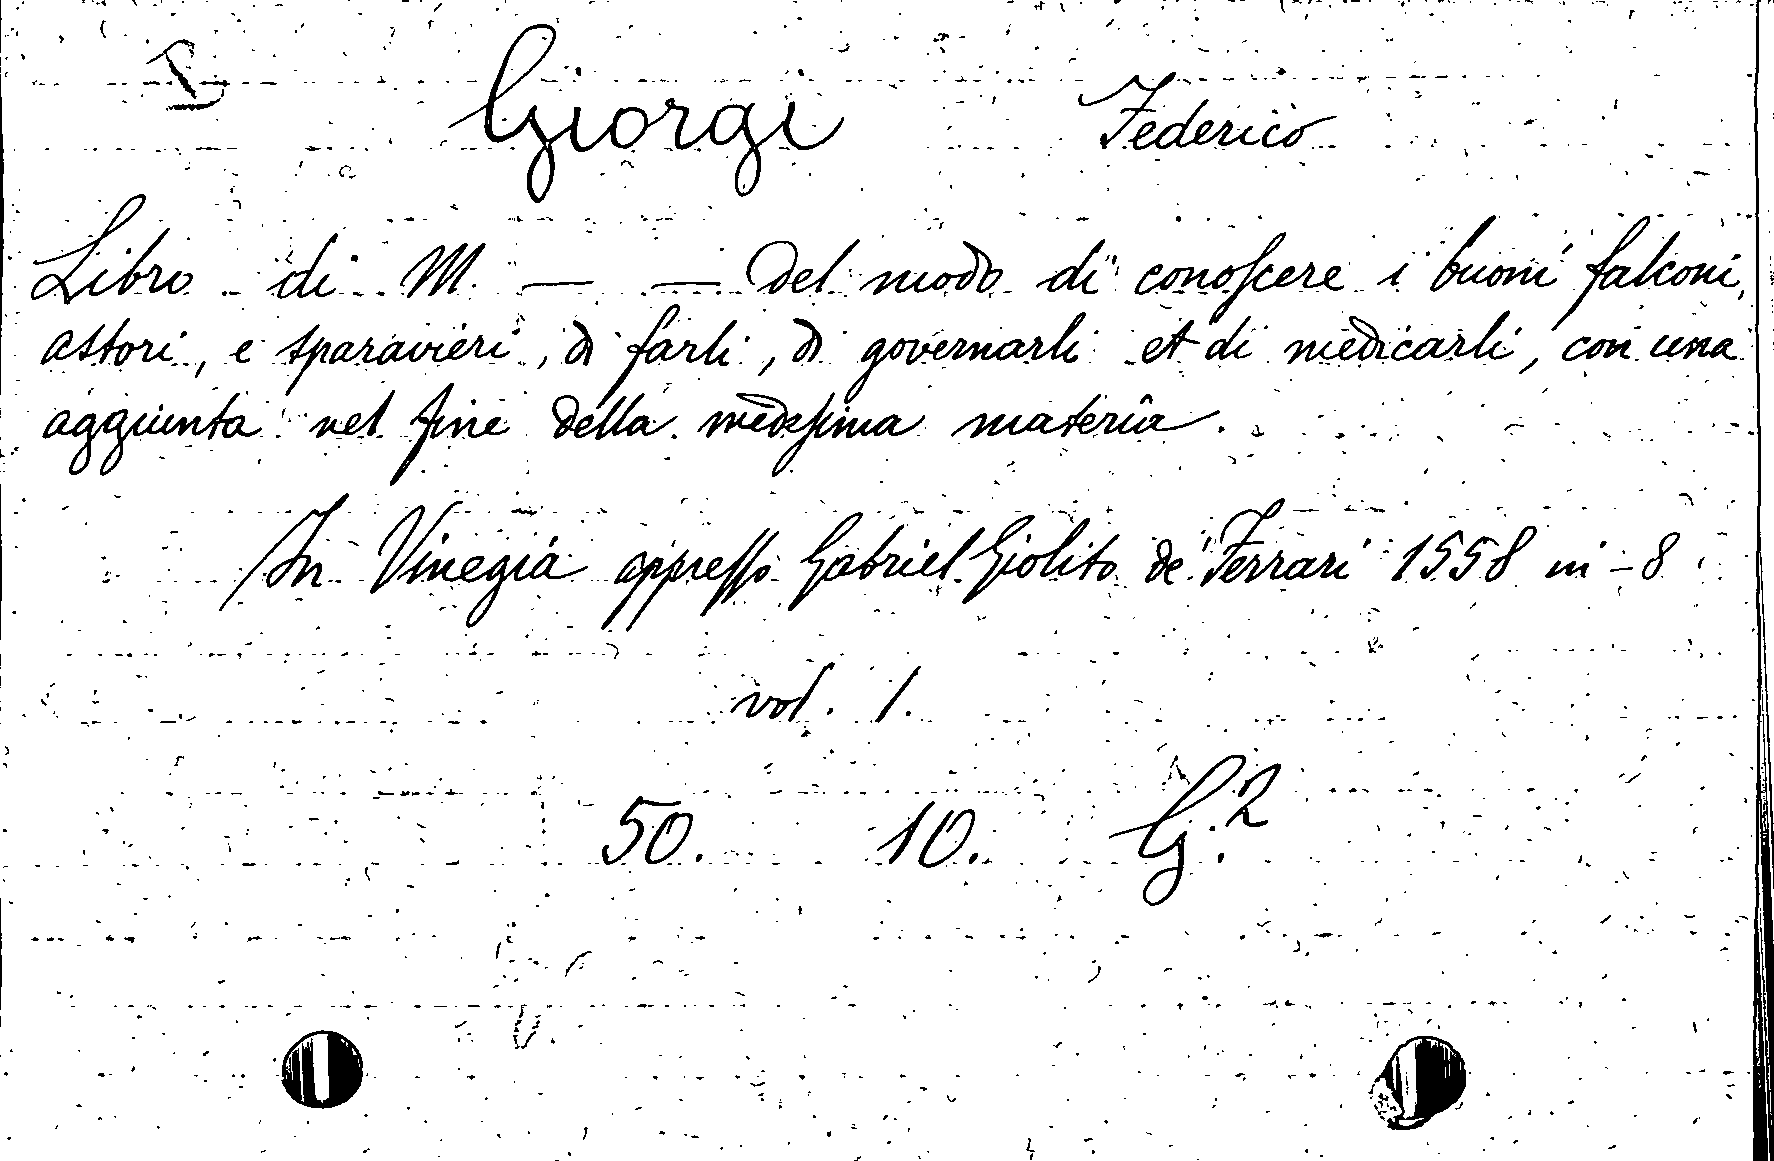 Giorgi Federico
Libro di M. — — Del modo di conoſcere i buoni falconi,
astori, e sparavieri, di farli, di governarli et di medicarli, con una
aggiunta nel fine della medeſima materia.
In Vinegia appreſſo Gabriel Giolito de' Ferrari 1558 in-8
vol. 1.
50. 10. G.2